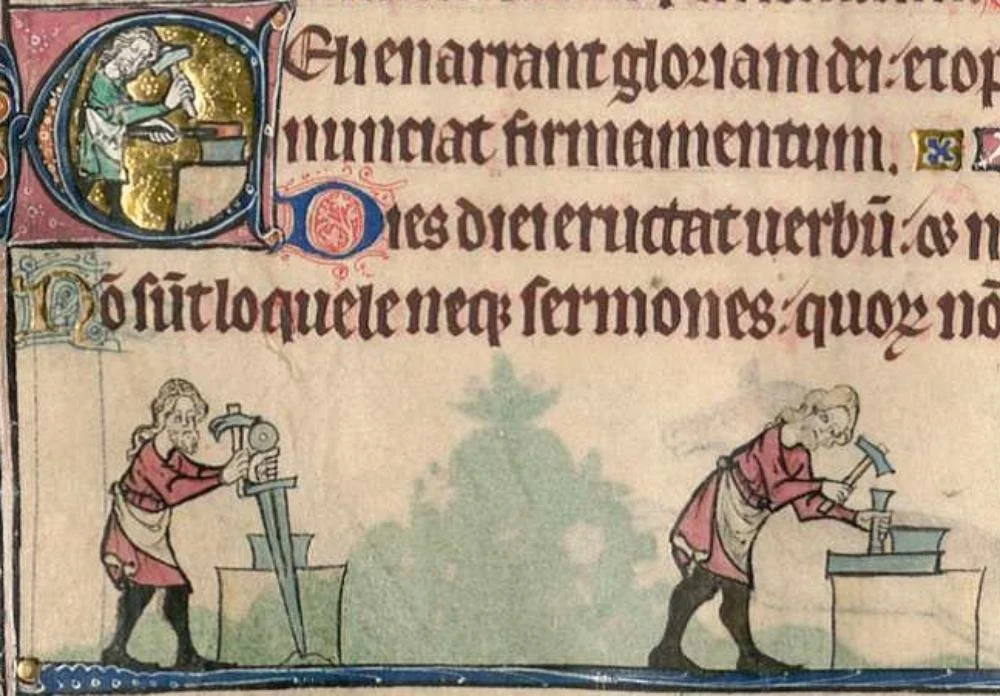 CEli enarrant gloriam dei: et op
nunciat firmamentum.
Dies diei eructat uerbū: & n
Nō sūt loquele neqꝫ sermones: quoꝝ nō